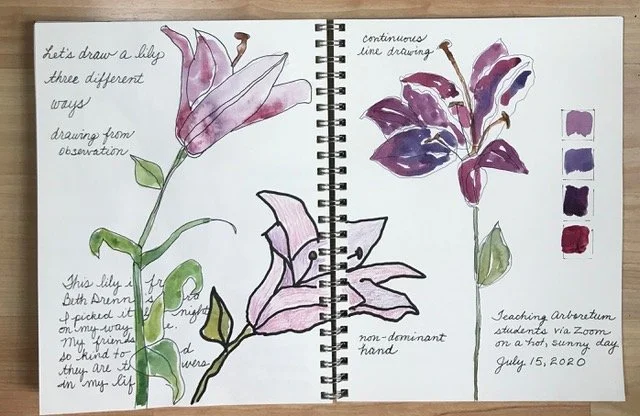 Let's draw a lily
three different
ways
drawing from
observation
This lily i fr
Beth Drenn s
I picked it night
on my way e.
My friends
so kind to d
they are t wers
in my lif
continuous
line drawing
non-dominant
hand
Teaching Arboretum
students via Zoom
on a hot, sunny day
July 15, 2020